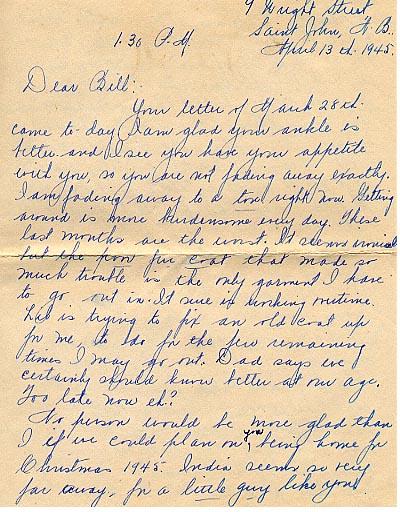 9 Wright Street
Saint John, N.B.
1.30 P.M. April 13th. 1945.
Dear Bill:-
Your letter of March 28th.
came to-day I am glad your ankle is
better and I see you have your appetite
with you, so you are not fading away exactly.
I am fading away to a ton right now. Getting
around is more burdensome every day. These
last months are the worst. It seems ironical
but the poor fur coat that made so
much trouble is the only garment I have
to go out in. It sure is working overtime.
is trying to fix an old coat up
for me, to do for the few remaining
times I may go out. Dad says we
certainly should know better at our age.
Too late now eh?
No person would be more glad than
I if we could plan on you, being home for
Christmas 1945. India seems so very
far away, for a little guy like you